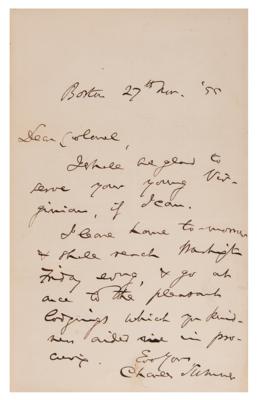 Boston 27th Nov. '55
Dear Colonel,
I shall be glad to
serve your young Vir-
ginian, if I can.
I leave home to-morrow
& shall reach Washington
Friday eveng, & go at
once to the pleasant
lodgings which yr kind-
ness aided me in pro-
curing.
Ever Yours,
Charles Sumner